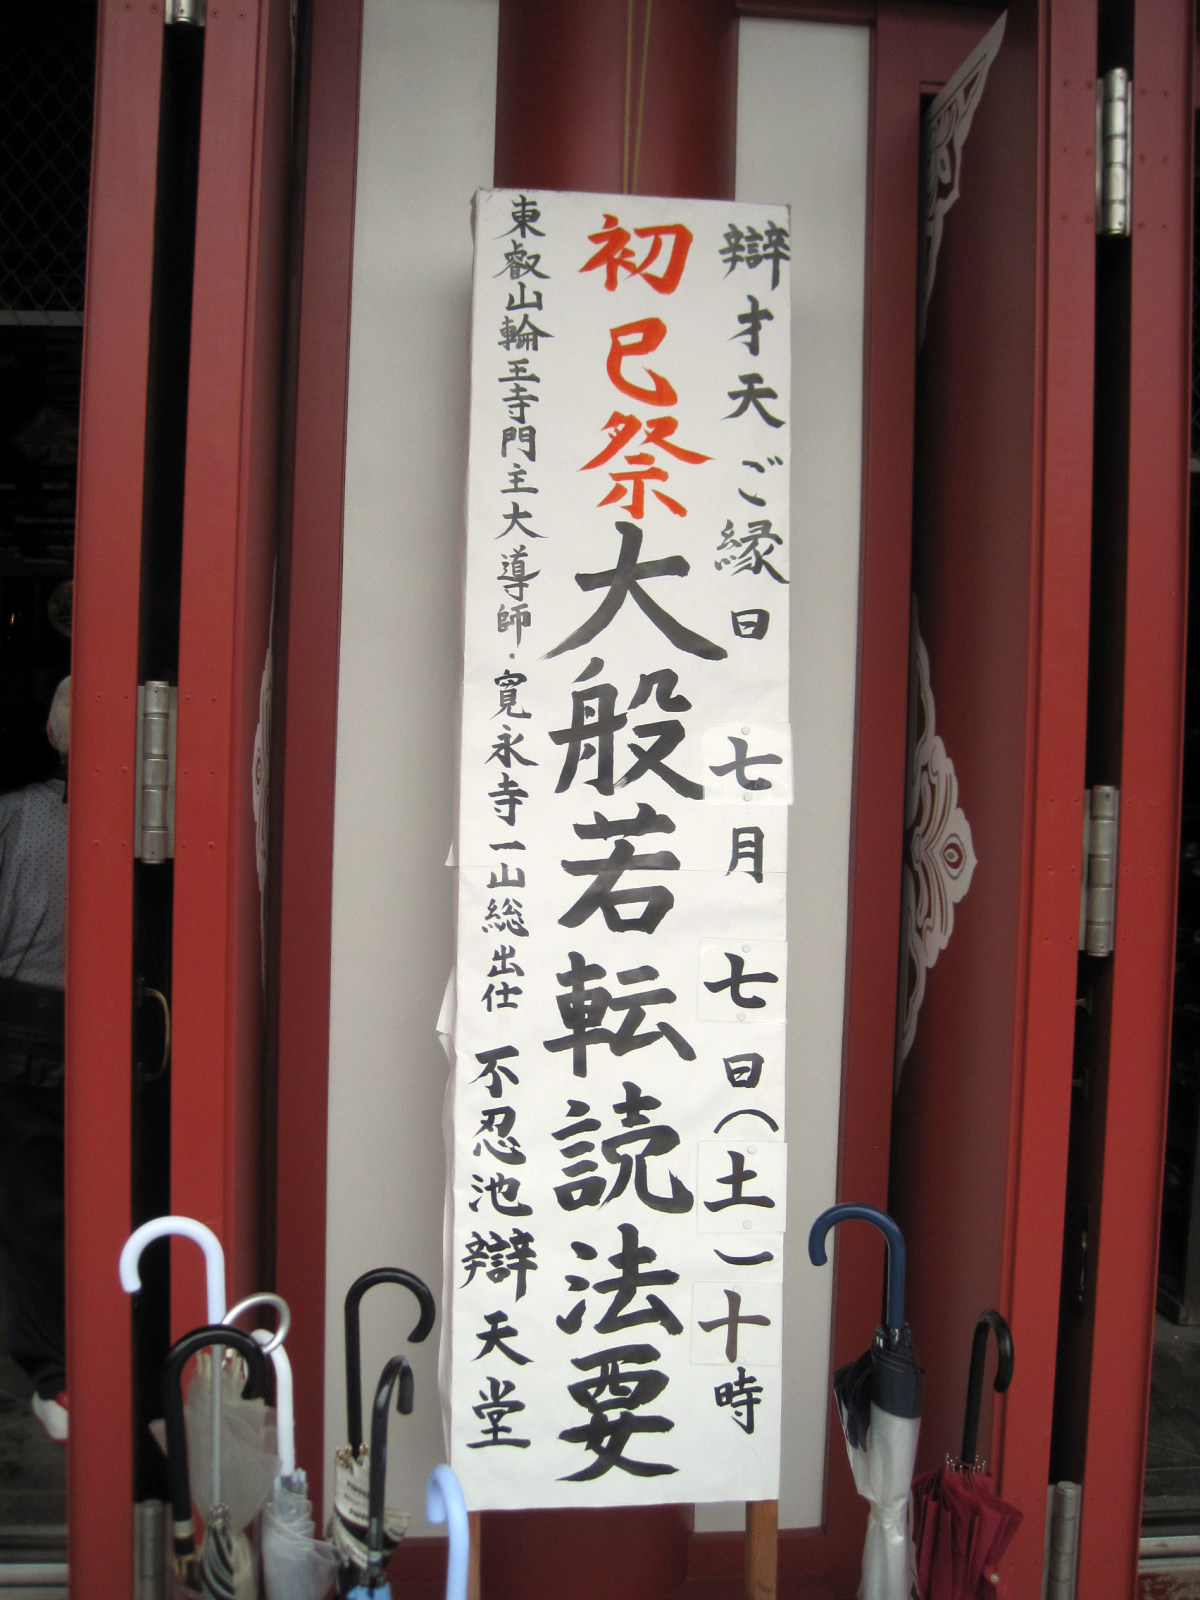 辯才天ご縁日 七月七日（土）十時
初巳祭大般若転読法要
東叡山輪王寺門主大導師・寛永寺一山総出仕 不忍池辯天堂